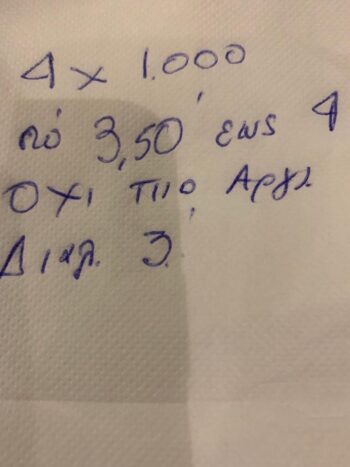 4 x 1.000
πό 3,50 εως 4
ΟΧΙ ΠΙΟ Αργά
Διαλ. 3